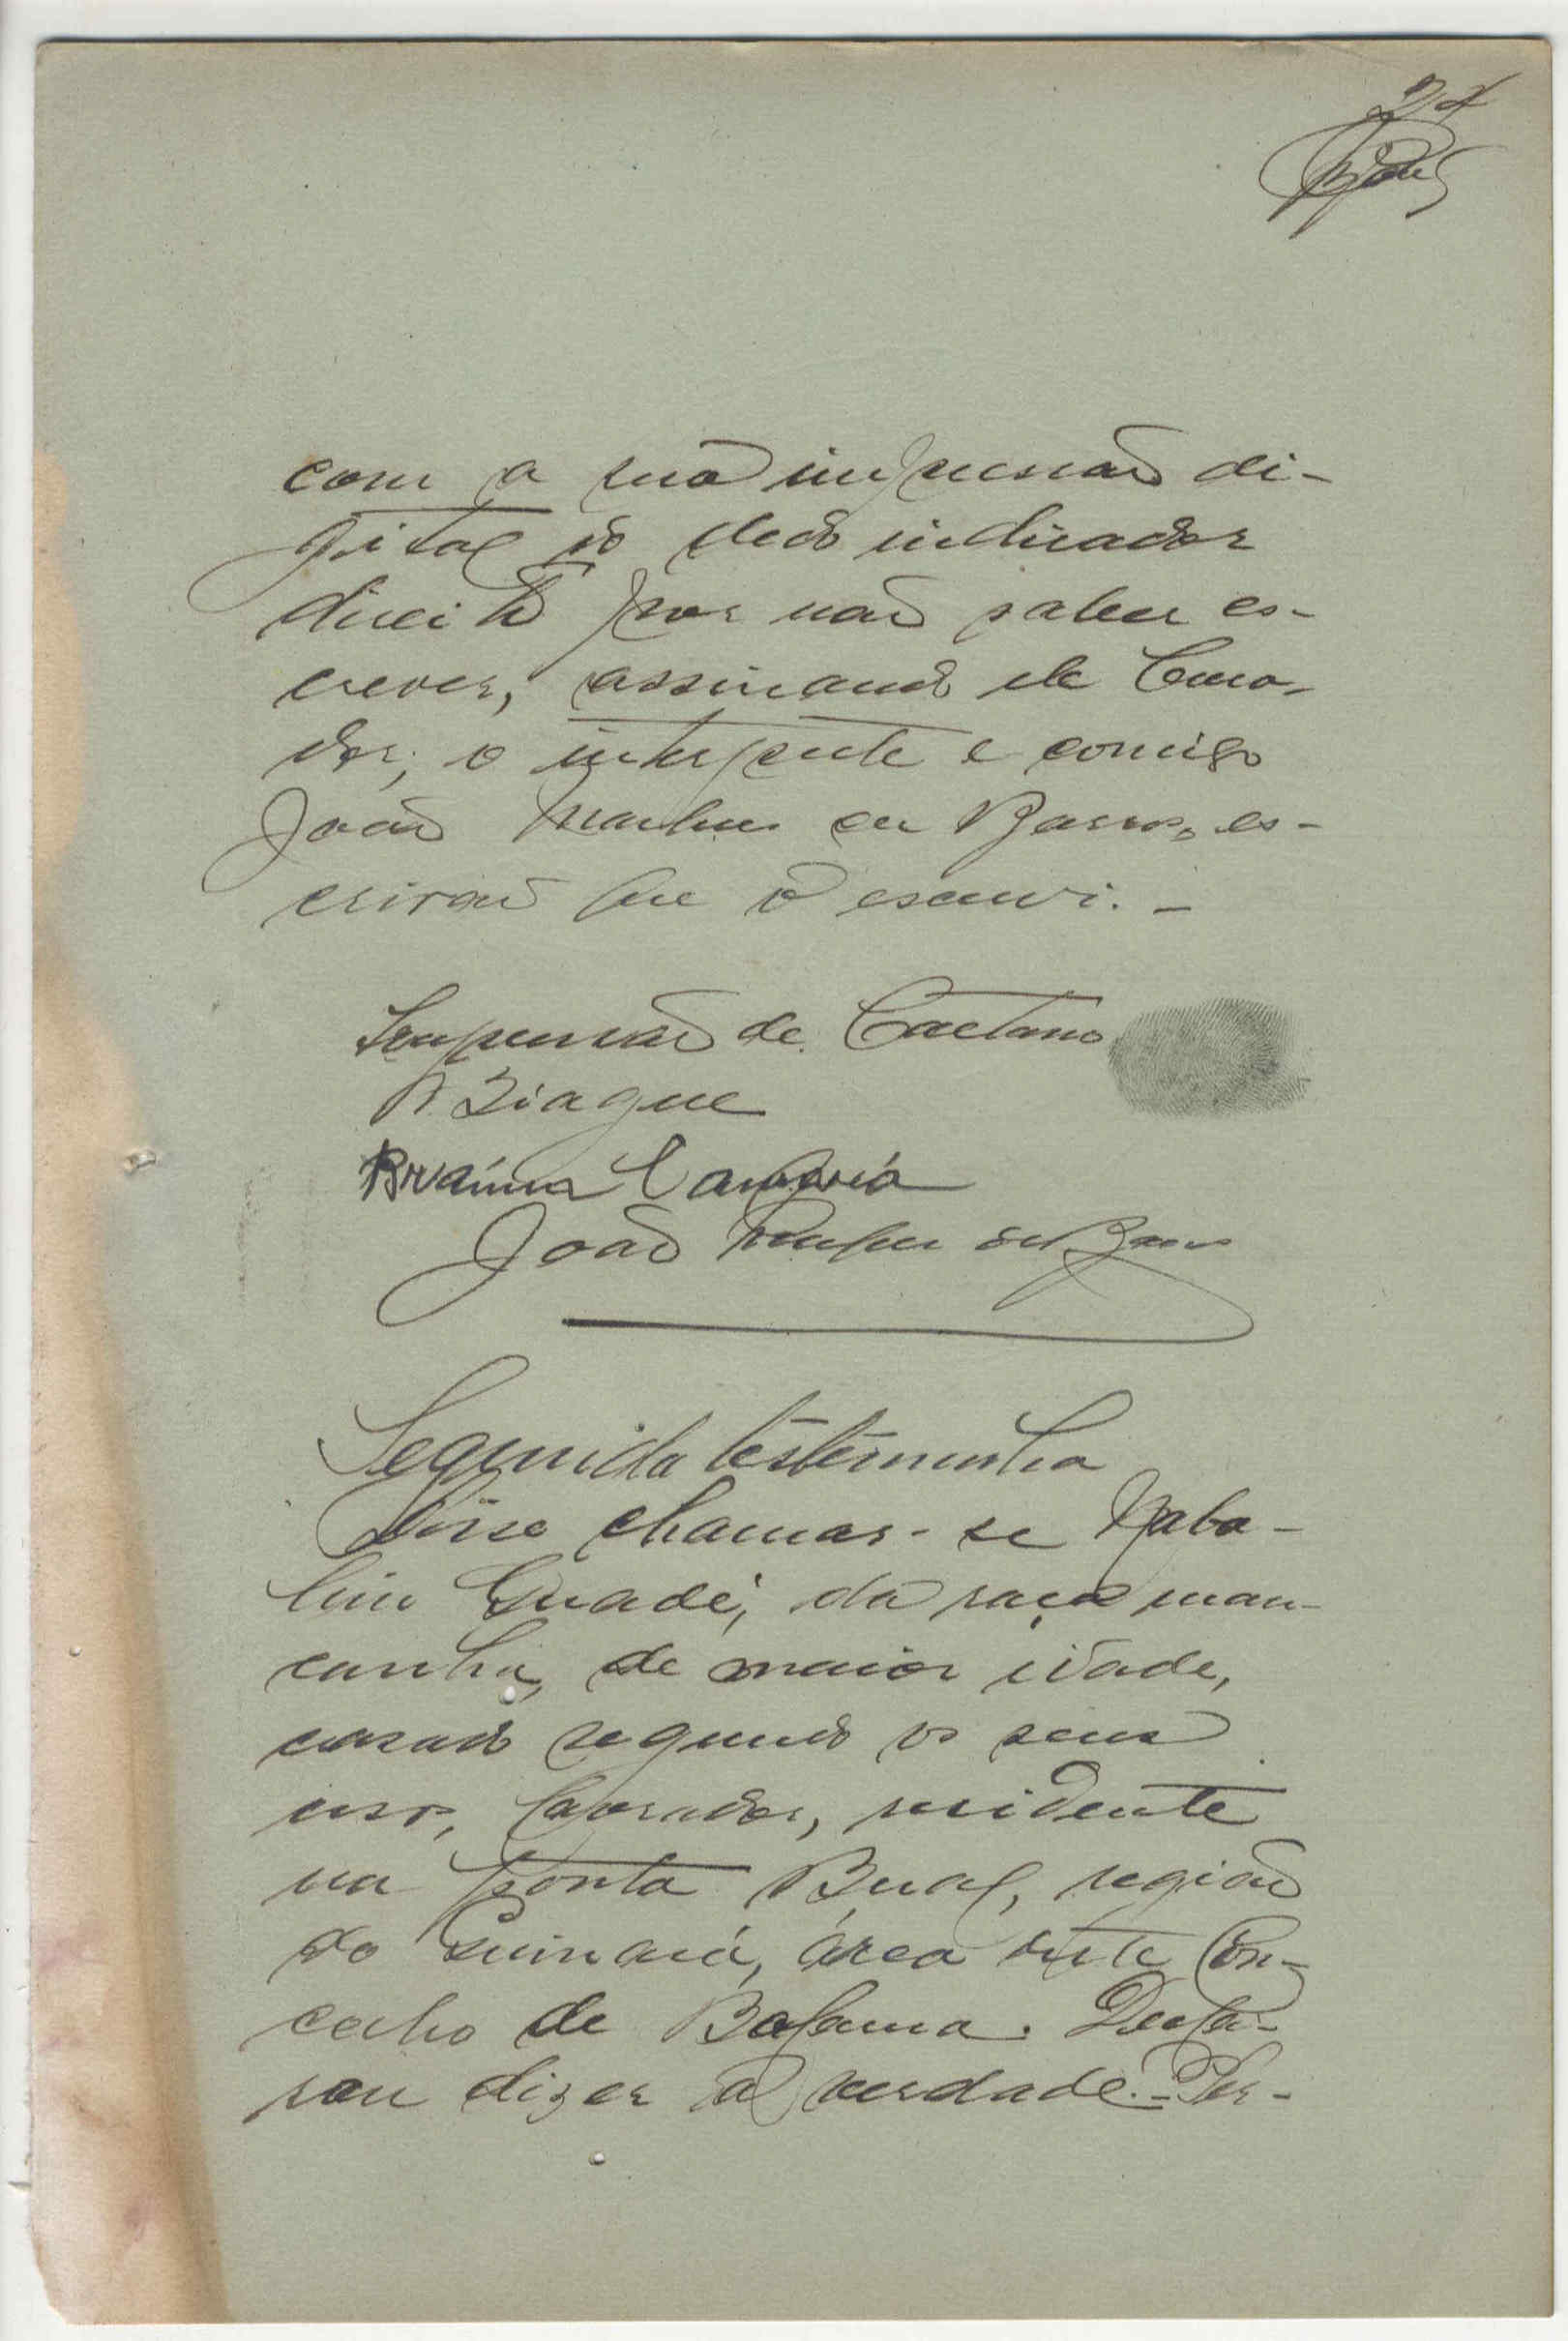 com a sua impressão di-
gital do dedo indicador
direito por não saber es-
crever, assinando ele Cura-
dor, o interprete e comigo
João de Barros, es-
crivão que o escrevi. -
Impressão de Caetano
Biague
João de Barros
Segunda testemunha
Disse chamar-se
da raça man-
canha, de maior idade,
casado segundo os seus
usos, lavrador, residente
na ponta Bual, região
do área deste Con-
celho de Bolama. Decla-
rou dizer a verdade. - Per-